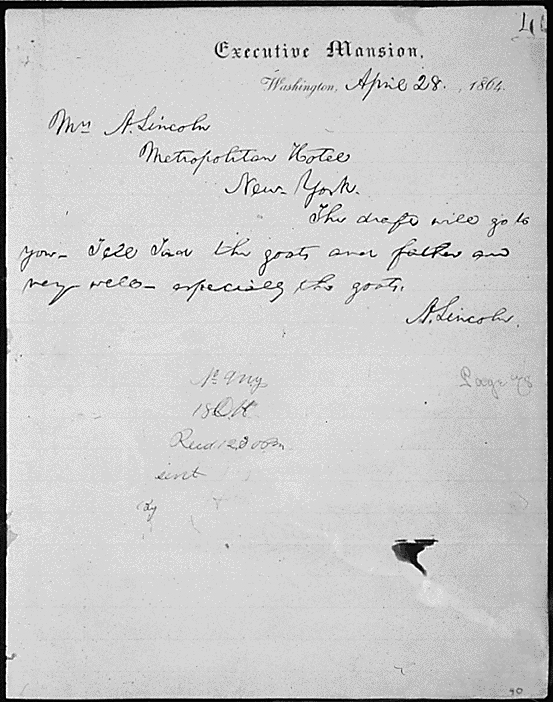 Executive Mansion,
Washington, April 28. , 1864.
Mrs A. Lincoln
Metropolitan Hotel
New-York.
The draft will go to
you— Tell Tad the goats and father are
very well— especially the goats.
A. Lincoln.
Page 78
18 OK
Recd 12 30 Pm
sent
90